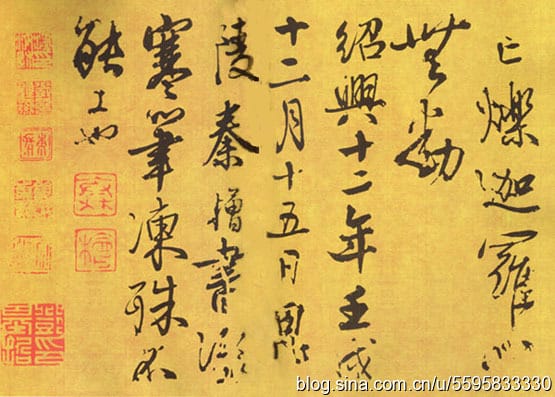 亡爍迦羅心
無動
紹興十二年壬戌
十二月十五日
陵秦檜書深
寒筆凍殊不
能工也
blog.sina.com.cn/u/5595833330